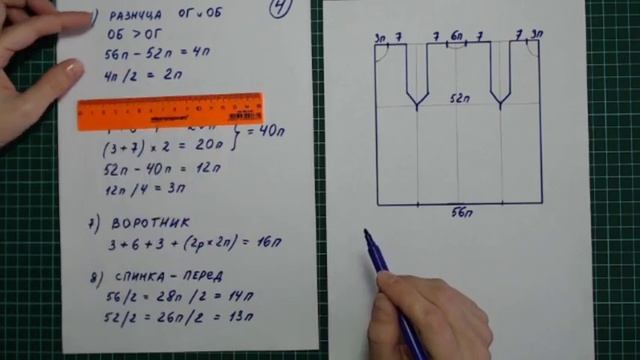 РАЗНИЦА ОГ и ОБ
ОБ > ОГ
56п - 52п = 4п
4п / 2 = 2п
(3 + 7) × 2 = 20п } = 40п
52п - 40п = 12п
12п / 4 = 3п
7) ВОРОТНИК
3 + 6 + 3 + (2р × 2п) = 16п
8) СПИНКА - ПЕРЕД
56/2 = 28п / 2 = 14п
52/2 = 26п / 2 = 13п
4
3п 7 7 6п 7 7 3п
52п
56п